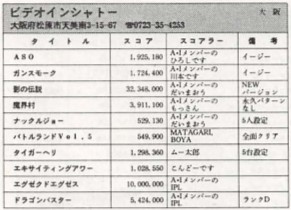 ビデオインシャトー 大阪
大阪府松原市天美南3-15-67 ☎0723-35-4253
タイトル スコア スコアラー 備考
ASO 1,925,180 A・Iメンバーの ひろしです イージー
ガンスモーク 1,724,400 A・Iメンバーの 川本です イージー
影の伝説 32,348,000 A・Iメンバーの だいまおう NEW バージョン
魔界村 3,911,100 A・Iメンバーの もっさん 永久パターン なし
ナックルジョー 529,130 A・Iメンバーの だいまおう 5人設定
バトルランドVol.5 549,900 MATAGARI, BOYA 全面クリア
タイガーヘリ 1,298,360 ムー太郎 5台設定
エキサイティングアワー 1,028,550 こんどーです
エグゼドエグゼス 10,000,000 A・Iメンバーの IPL
ドラゴンバスター 5,424,000 A・Iメンバーの IPL ランクD